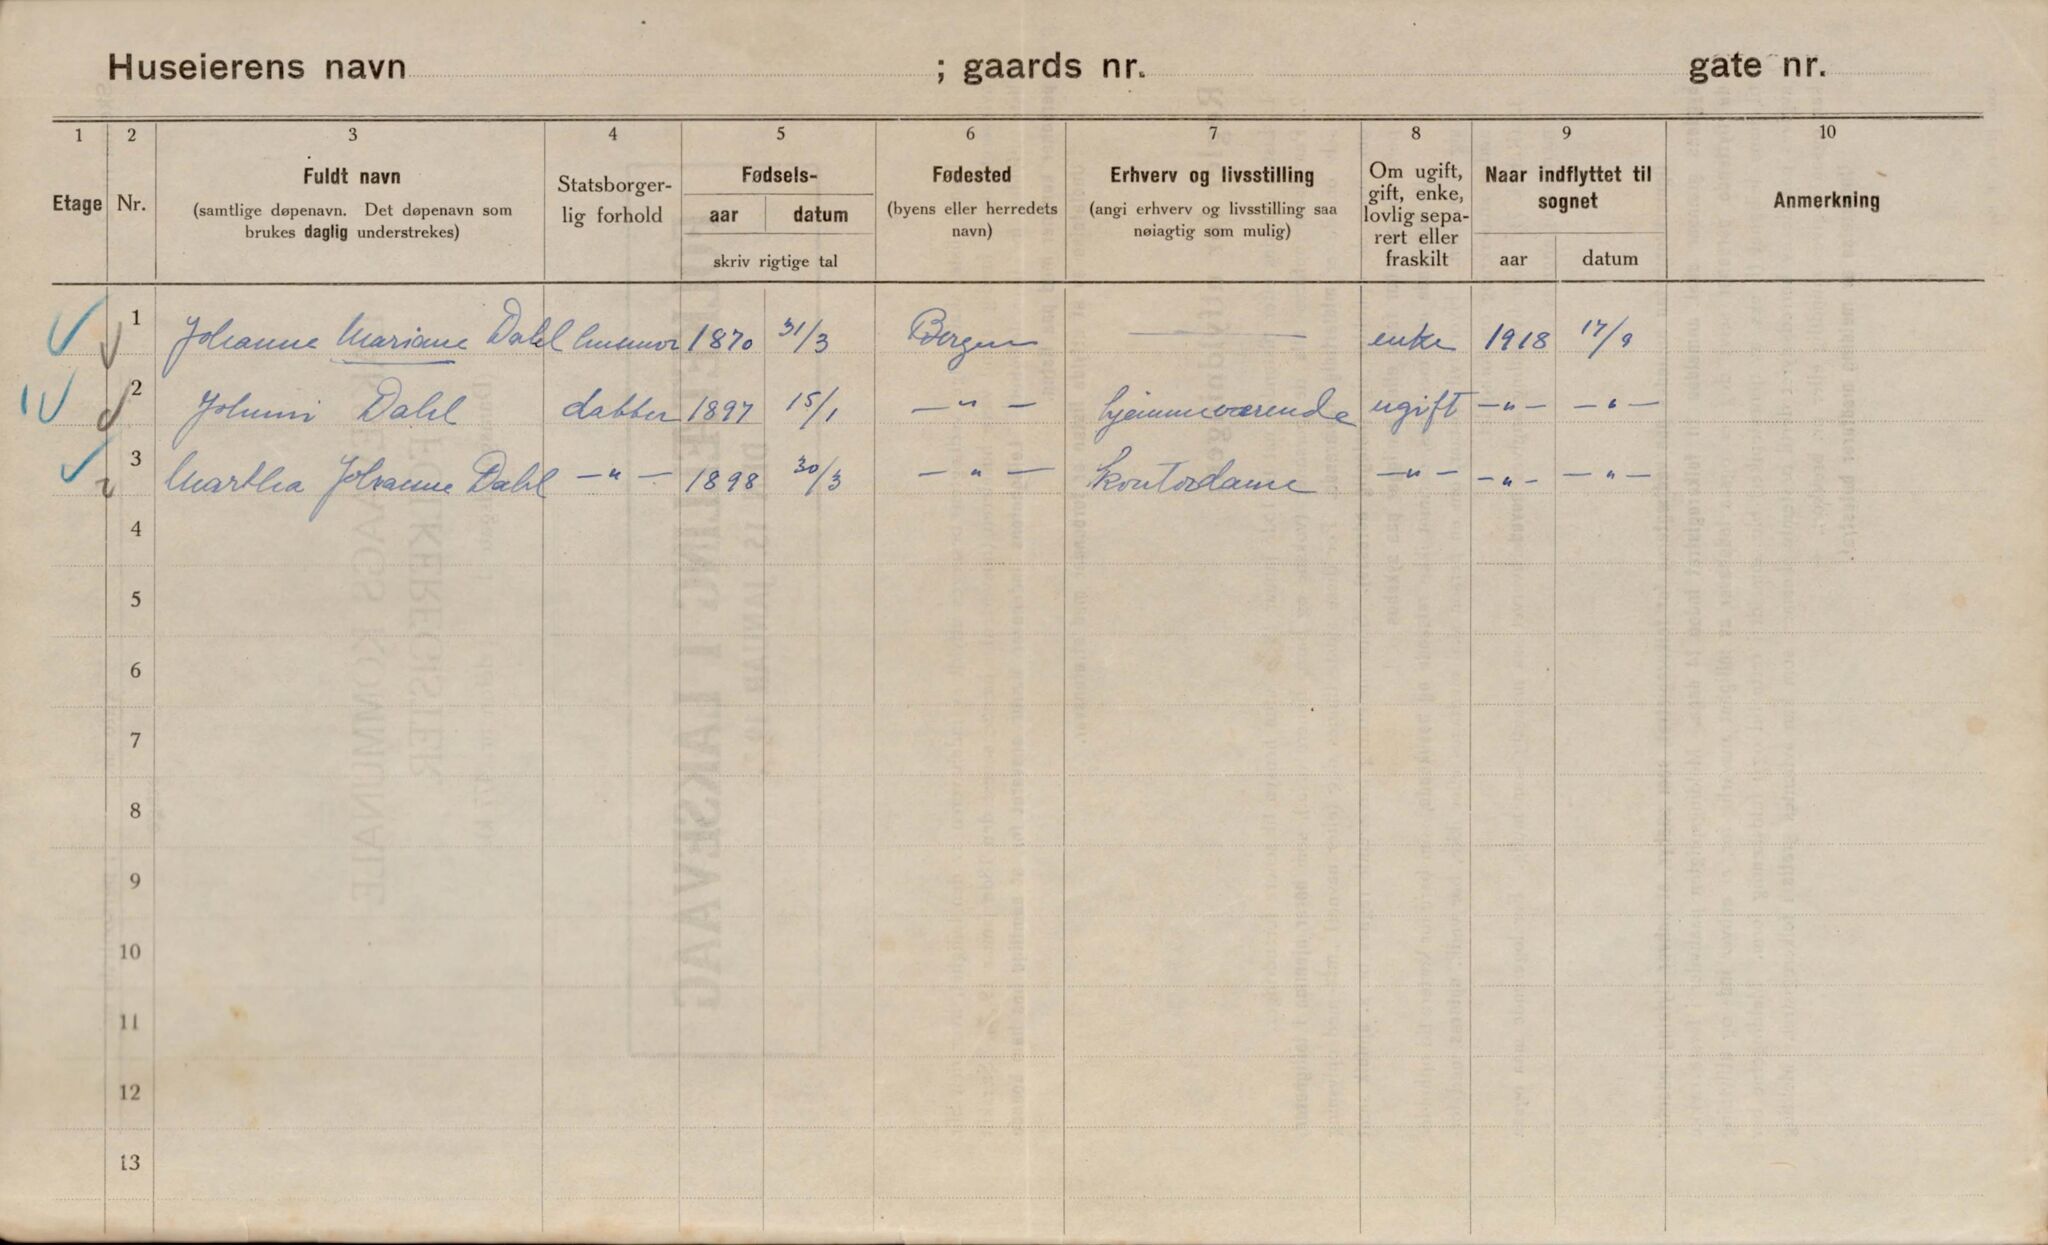 Huseierens navn ; gaards nr. gate nr.
1 2 3 4 5 6 7 8 9 10
Etage
Nr.
Fuldt navn
(samtlige døpenavn. Det døpenavn som
brukes daglig understrekes)
Statsborger-
lig forhold
Fødsels-
aar datum
skriv rigtige tal
Fødested
(byens eller herredets
navn)
Erhverv og livsstilling
(angi erhverv og livsstilling saa
nøiagtig som mulig)
Om ugift,
gift, enke,
lovlig sepa-
rert eller
fraskilt
Naar indflyttet til
sognet
aar datum
Anmerkning
1 Johanne Mariane Dahl husmor 1870 31/3 Bergen — enke 1918 17/9
2 Johnni Dahl datter 1897 15/1 —„— hjemmeværende ugift —„— —„—
3 Martha Johanne Dahl —„— 1898 30/3 —„— kontordame —„— —„— —„—
4
5
6
7
8
9
10
11
12
13